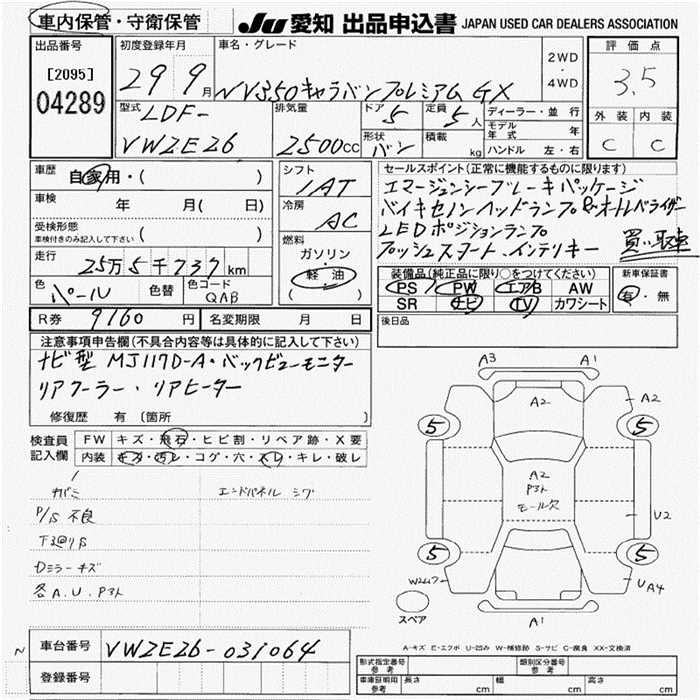 車内保管・守衛保管
JU 愛知 出品申込書 JAPAN USED CAR DEALERS ASSOCIATION
出品番号
[2095]
04289
初度登録年月
29 9月
車名・グレード
NV350キャラバンプレミアム GX
2WD
・
4WD
評価点
3.5
外装 内装
C C
型式
LDF-
VW2E26
排気量
2500cc
ドア
5
形状
バン
定員
5人
積載
kg
ディーラー・並行
モデル年式 年
ハンドル 左・右
車歴
自家用・( )
車検
年 月( 日)
受検形態
車検付きのみ記入して下さい ( )
走行
25万5千737km
色
パール
色替
色コード
QAB
シフト
IAT
冷房
AC
燃料
ガソリン・
軽油
( )
セールスポイント(正常に機能するものに限ります)
エマージェンシーブレーキパッケージ
バイキセノンヘッドランプ&オートレベライザー
LEDポジションランプ
プッシュスタート、インテリキー
買い取車
装備品(純正品に限り○をつけてください)
PS PW エアB AW
SR ナビ TV カワシート
新車保証書
有・無
R券 9160円
名変期限 月 日
後日品
注意事項申告欄(不具合内容等は具体的に記入して下さい)
ナビ型 MJ117D-A・バックビューモニター
リアクーラー・リアヒーター
修復歴 有〔箇所 〕
検査員
記入欄
FW キズ・飛石・ヒビ割・リペア跡・X要
内装 キズ・汚レ・コゲ・穴・スレ・キレ・破レ
エンドパネル シワ
P/S 不良
Dミラーキズ
各A.U.Pヌケ
A3 A1
A2 A2
5 5
A2
モール欠
U2
5 5
W2 U A4
A1
スペア
A-キズ E-エクボ U-凹み W-補修跡 S-サビ C-腐食 XX-交換済
車台番号
VW2E26-031064
登録番号
形式指定番号
参考
類別区分番号
参考
車庫証明用
参考
長さ cm 幅 cm 高さ cm